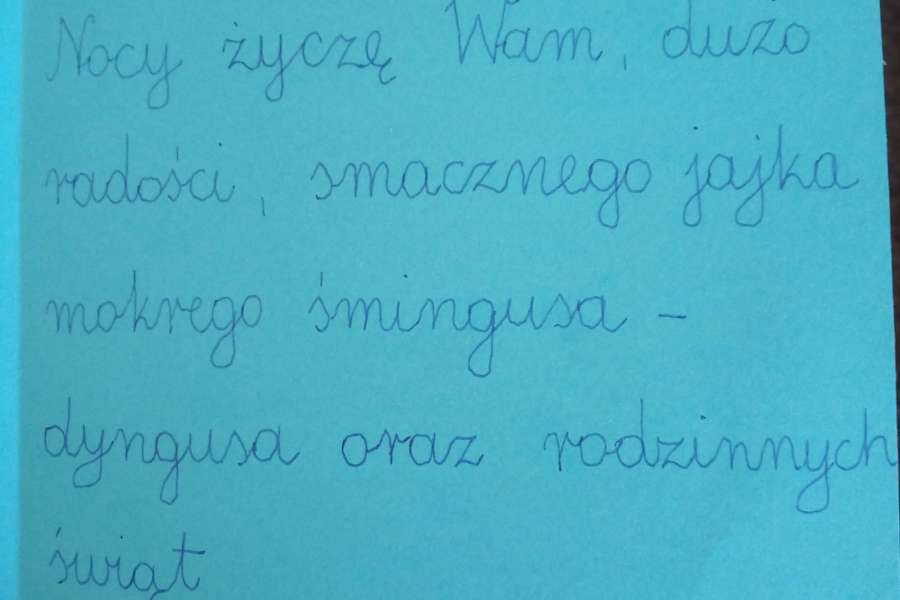 Nocy życzę Wam, dużo
radości, smacznego jajka
mokrego śmingusa -
dyngusa oraz rodzinnych
świąt